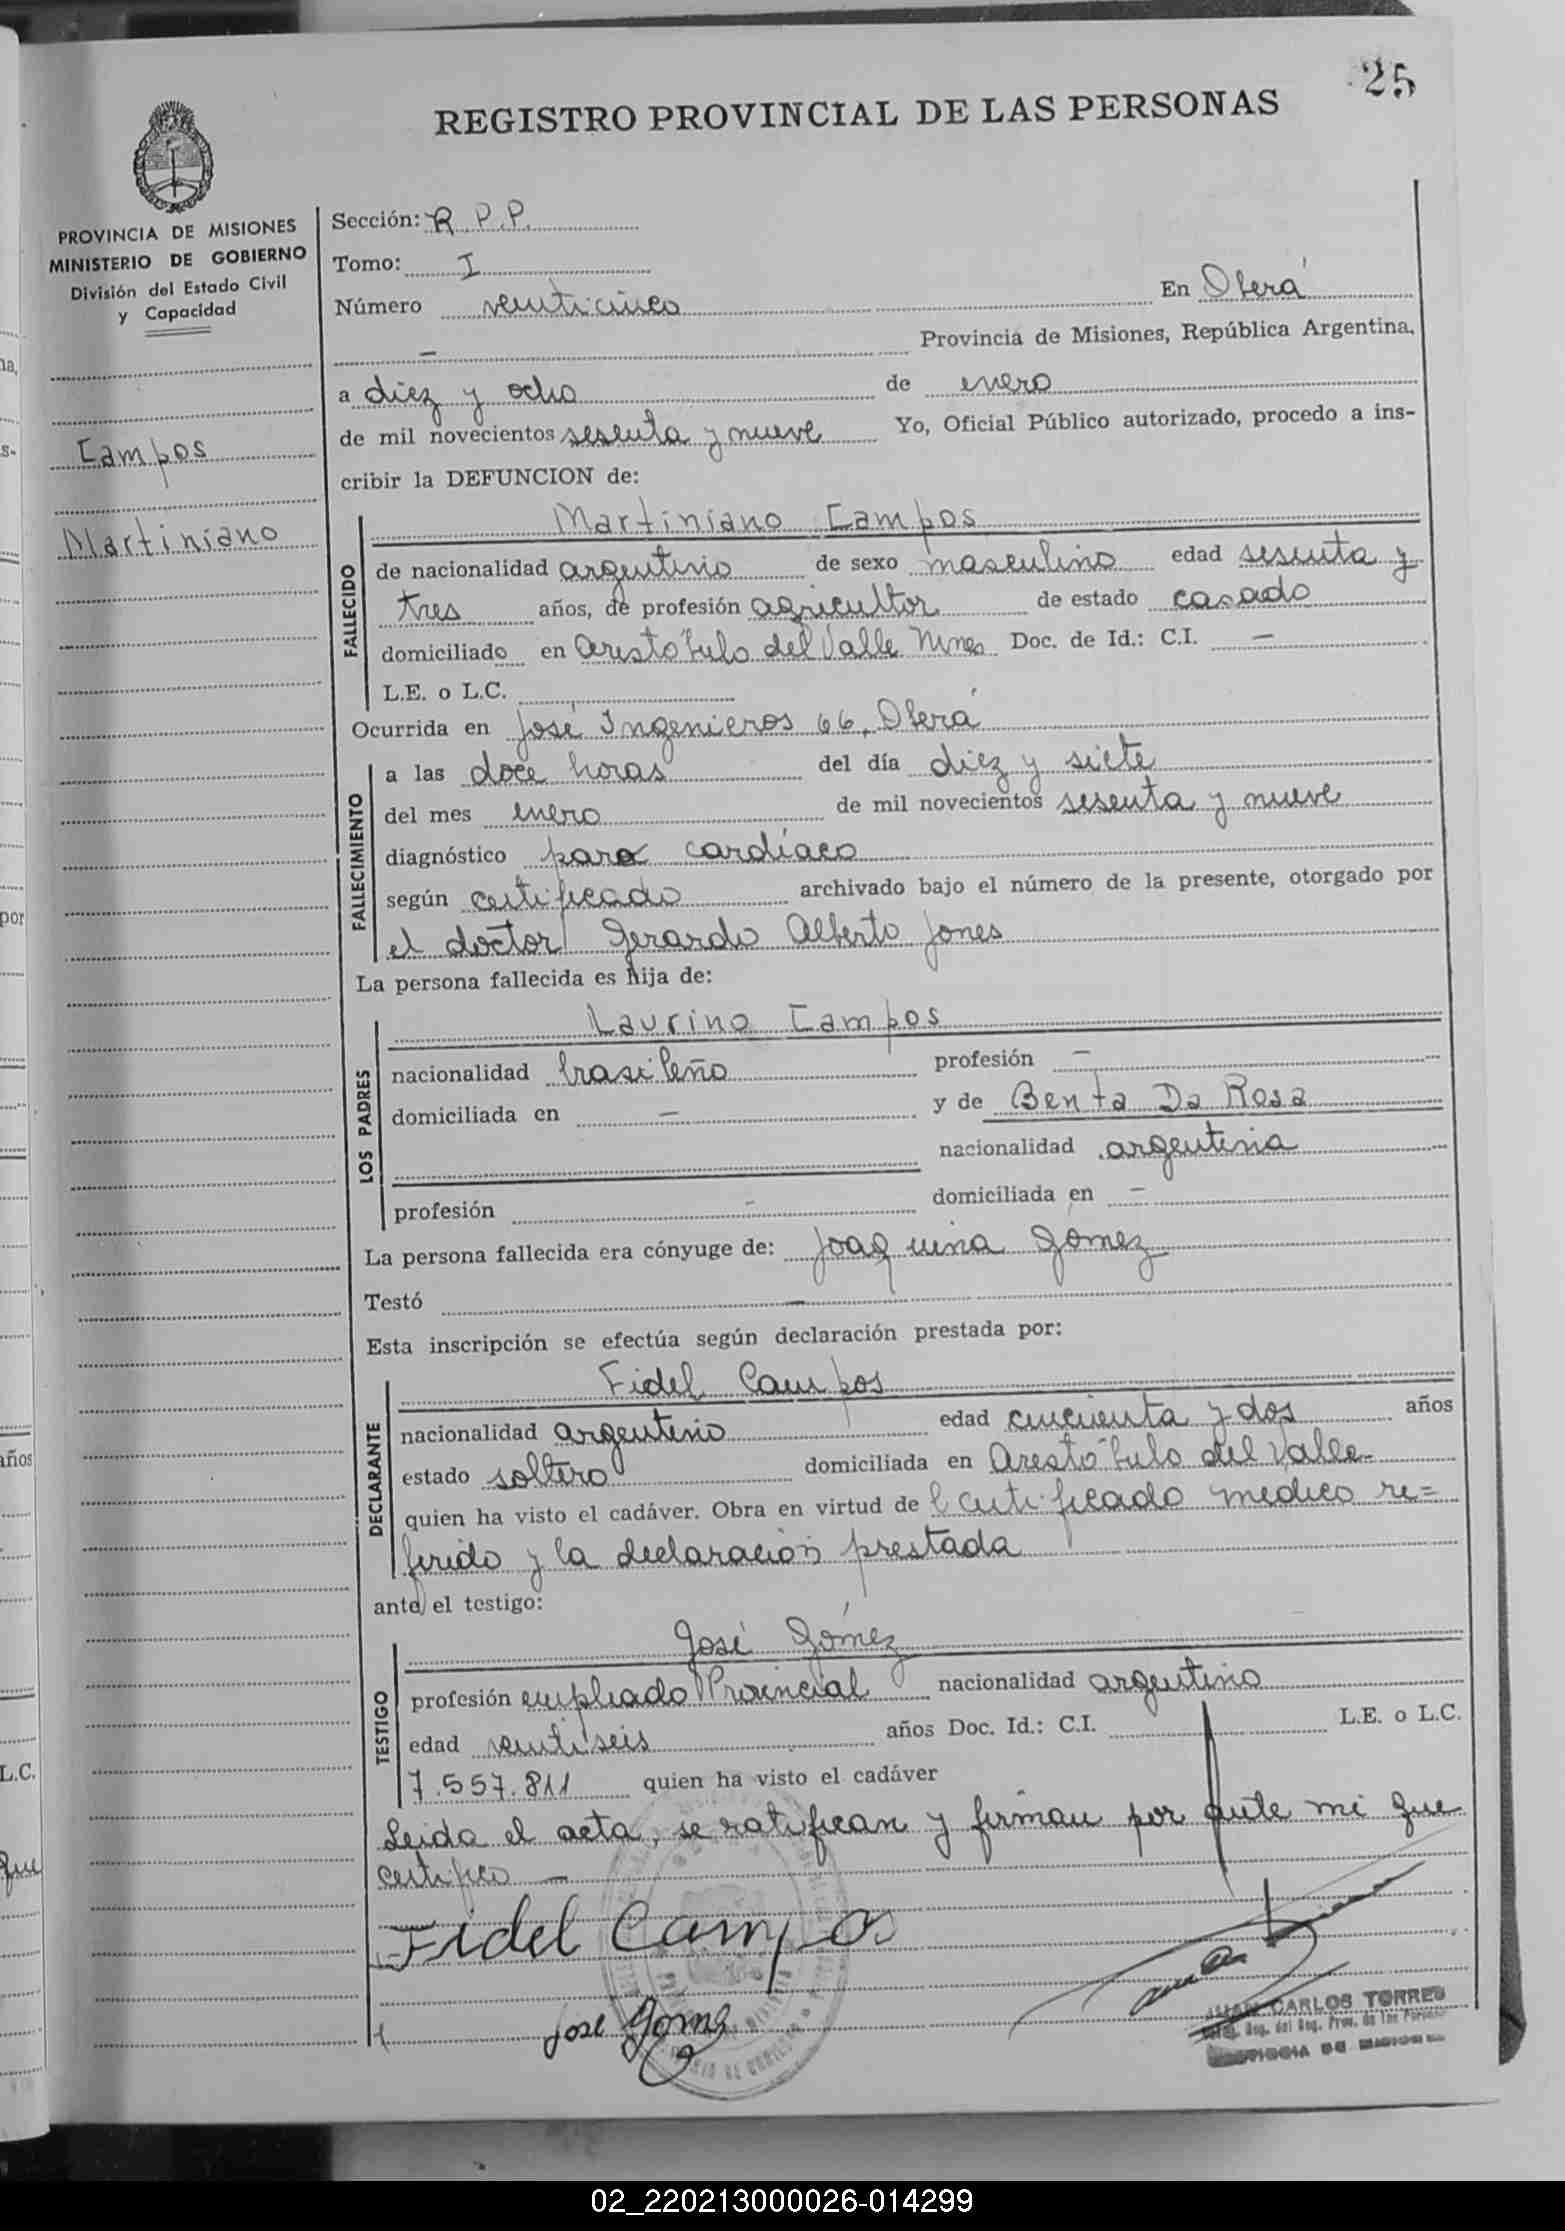 25
REGISTRO PROVINCIAL DE LAS PERSONAS
PROVINCIA DE MISIONES
MINISTERIO DE GOBIERNO
División del Estado Civil
y Capacidad
Campos
Martiniano
Sección: R.P.P.
Tomo: I
Número venticinco En Oberá
— Provincia de Misiones, República Argentina,
a diez y ocho de enero
de mil novecientos sesenta y nueve Yo, Oficial Público autorizado, procedo a ins-
cribir la DEFUNCION de:
FALLECIDO
Martiniano Campos
de nacionalidad argentino de sexo masculino edad sesenta y
tres años, de profesión agricultor de estado casado
domiciliado en Aristóbulo del Valle Mnes Doc. de Id.: C.I. —
L.E. o L.C.
Ocurrida en José Ingenieros 66, Oberá
FALLECIMIENTO
a las doce horas del día diez y siete
del mes enero de mil novecientos sesenta y nueve
diagnóstico paro cardíaco
según certificado archivado bajo el número de la presente, otorgado por
el doctor Gerardo Alberto Jones
La persona fallecida es hija de:
LOS PADRES
Laurino Campos
nacionalidad brasileño profesión —
domiciliada en — y de Benta Da Rosa
nacionalidad argentina
profesión — domiciliada en —
La persona fallecida era cónyuge de: Joaquina Gómez
Testó —
Esta inscripción se efectúa según declaración prestada por:
DECLARANTE
Fidel Campos
nacionalidad argentino edad cincuenta y dos años
estado soltero domiciliada en Aristóbulo del Valle
quien ha visto el cadáver. Obra en virtud de l certificado médico re=
ferido y la declaración prestada
ante el testigo:
TESTIGO
José Gómez
profesión empleado Provincial nacionalidad argentino
edad ventiseis años Doc. Id.: C.I. L.E. o L.C.
7.557.811 quien ha visto el cadáver
Leida el acta, se ratifican y firman por ante mi que
certifico —
Fidel Campos
Jose Gomez
JUAN CARLOS TORRES
Reg. del Reg. Prov. de las Personas
PROVINCIA DE MISIONES
02_220213000026-014299